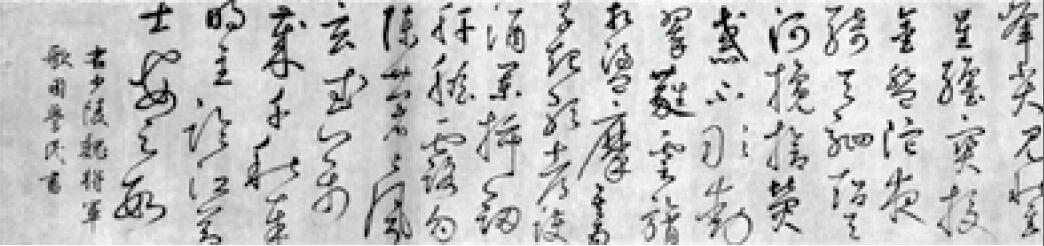 峯尖見秋隼
星躔寶校
金盤陀夜
騎天駟超天
河欃槍熒
惑不敢動
翠蕤雲旓
相盪摩吾為
子起歌都護
酒闌插劍
肝膽露勾
陳蒼蒼風
玄武萬
歲千秋奉
明主臨江節
士安足數
書少陵魏將軍
歌